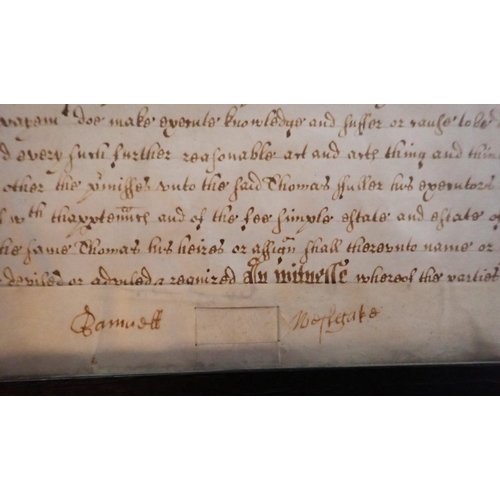 doe make execute knowledge and suffer or cause to be
every such further reasonable act and acts thing and
other the p'misses unto the said Thomas ffuller his executors
wth and of the fee simple estate and estate of
the same Thomas his heires or assigns shall thereunto name or
devised or advised & required In witnesse whereof the parties
Samuell Westlake